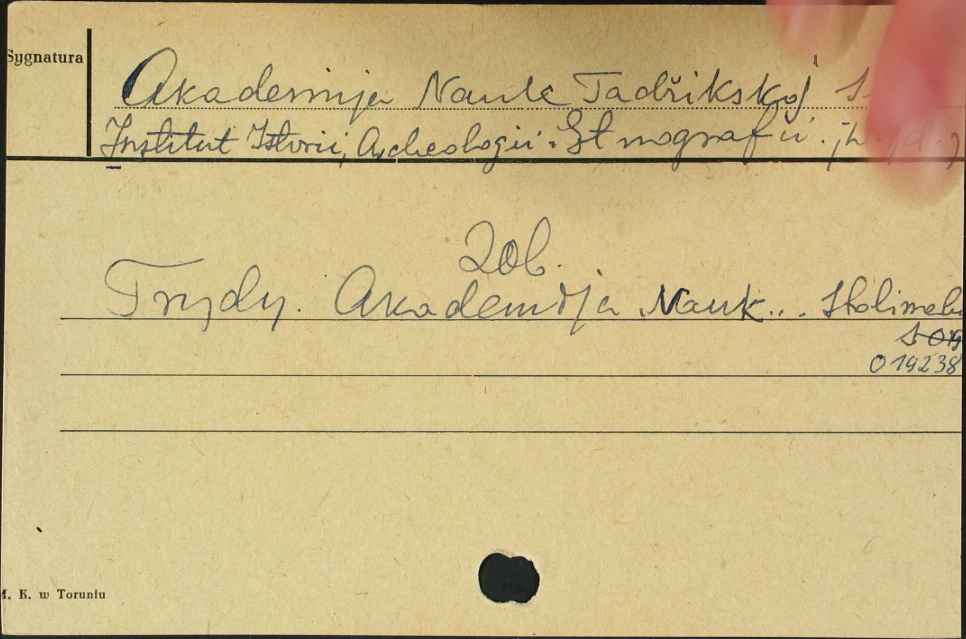 Sygnatura
Akademija Nauk Tadžikskoj S
Institut Istorii, Archeologii i Etnografii.
Zob.
Trydy. Akademija Nauk... Stolineb
019238
M. K. w Toruniu